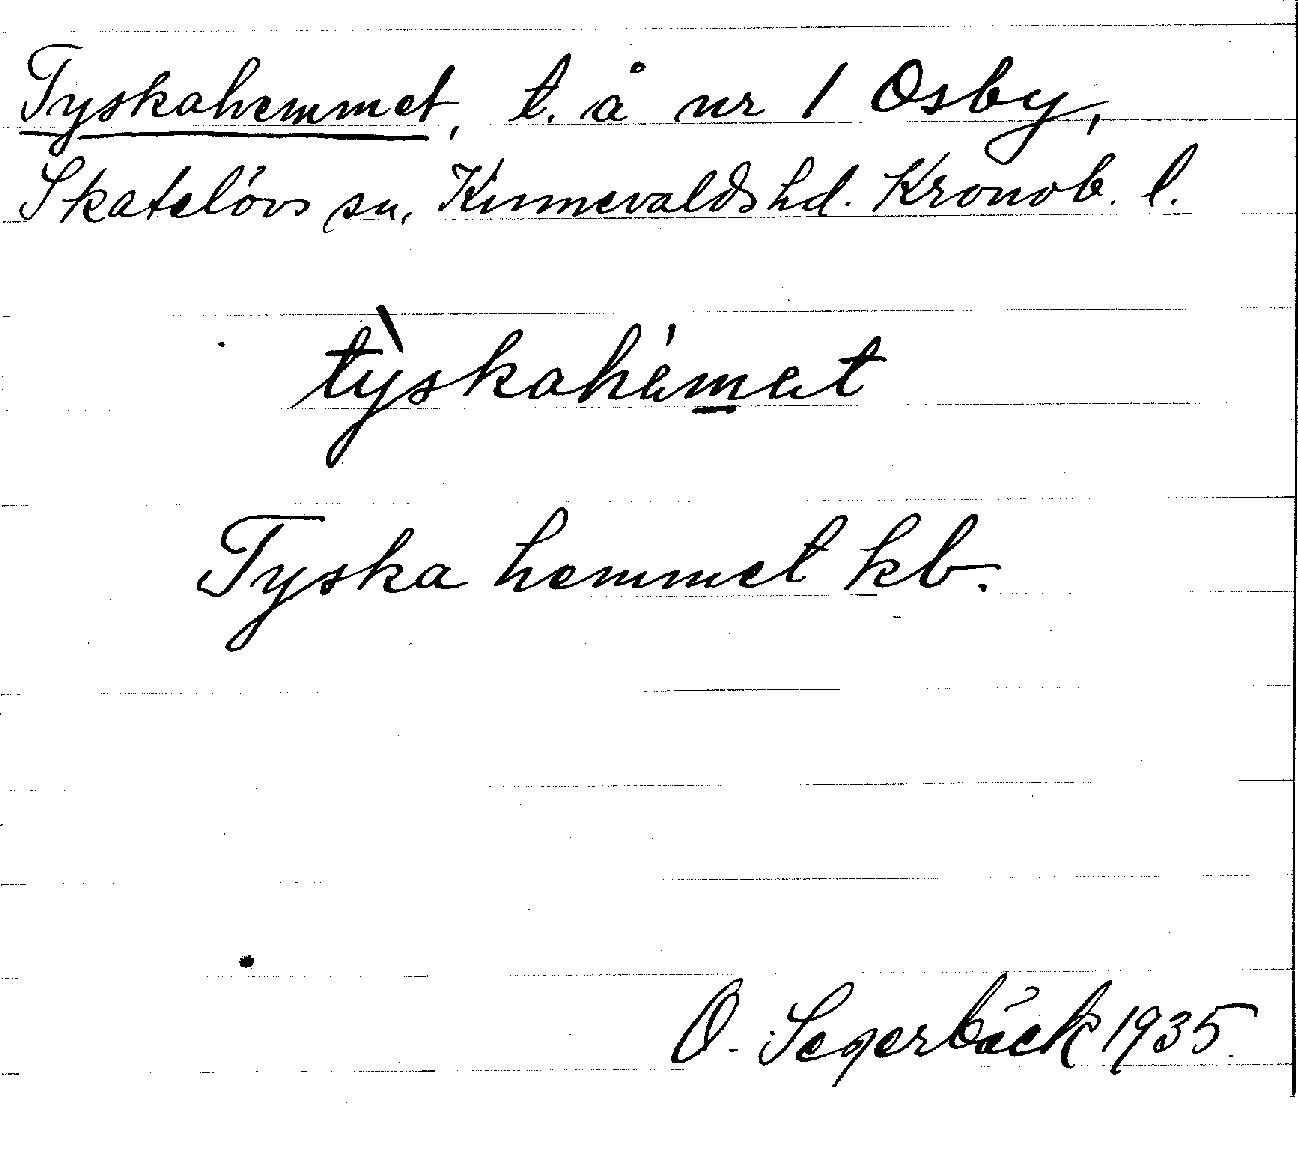 Tyskahemmet, t. å nr 1 Osby,
Skatelövs sn, Kinnevalds hd. Kronob. l.
tỳskahémet
Tyska hemmet kb.
O. Segerbäck 1935.